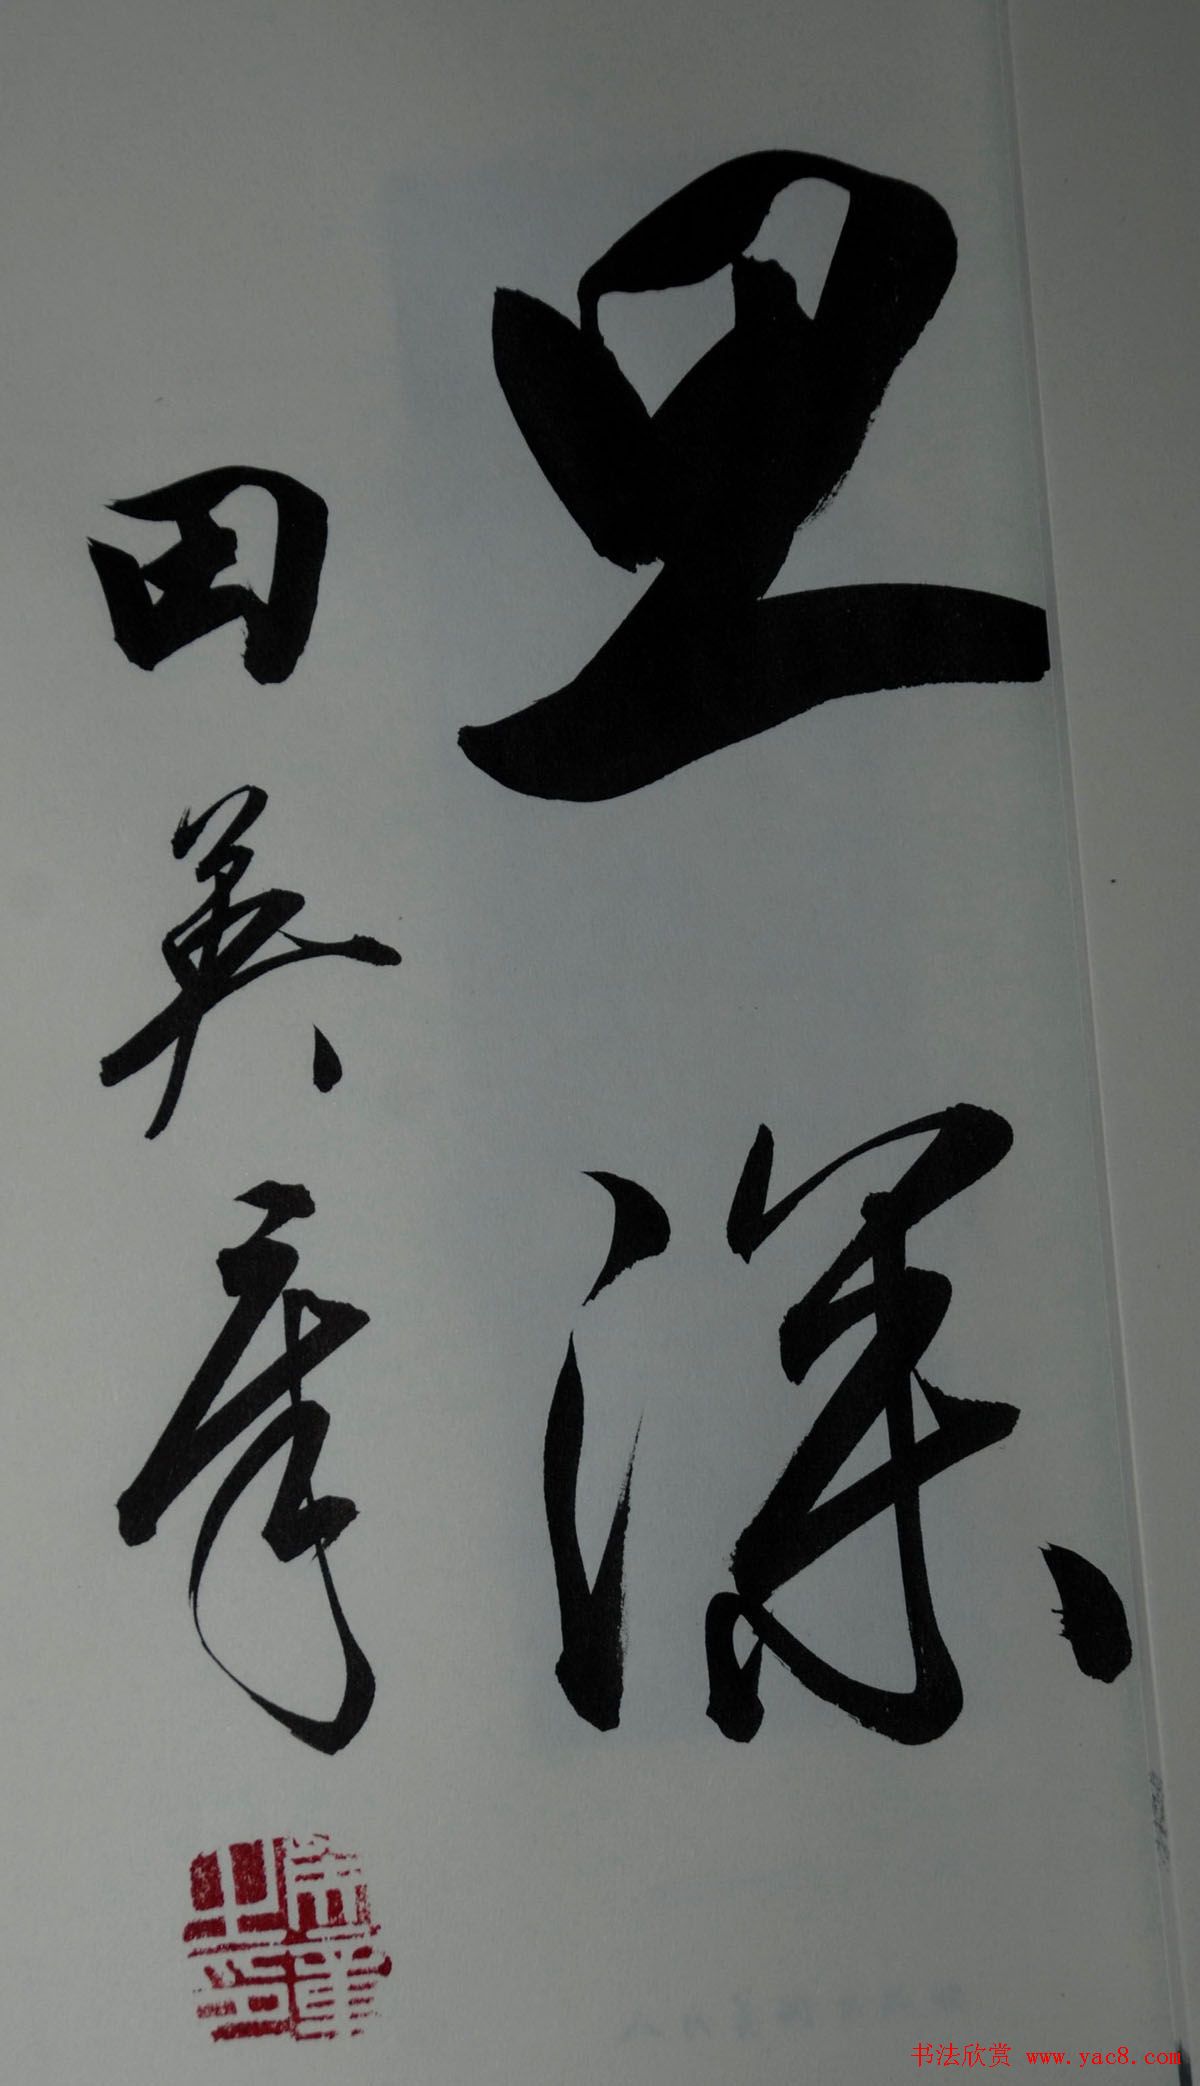 旦深
田英章
书法欣赏 www.yac8.com